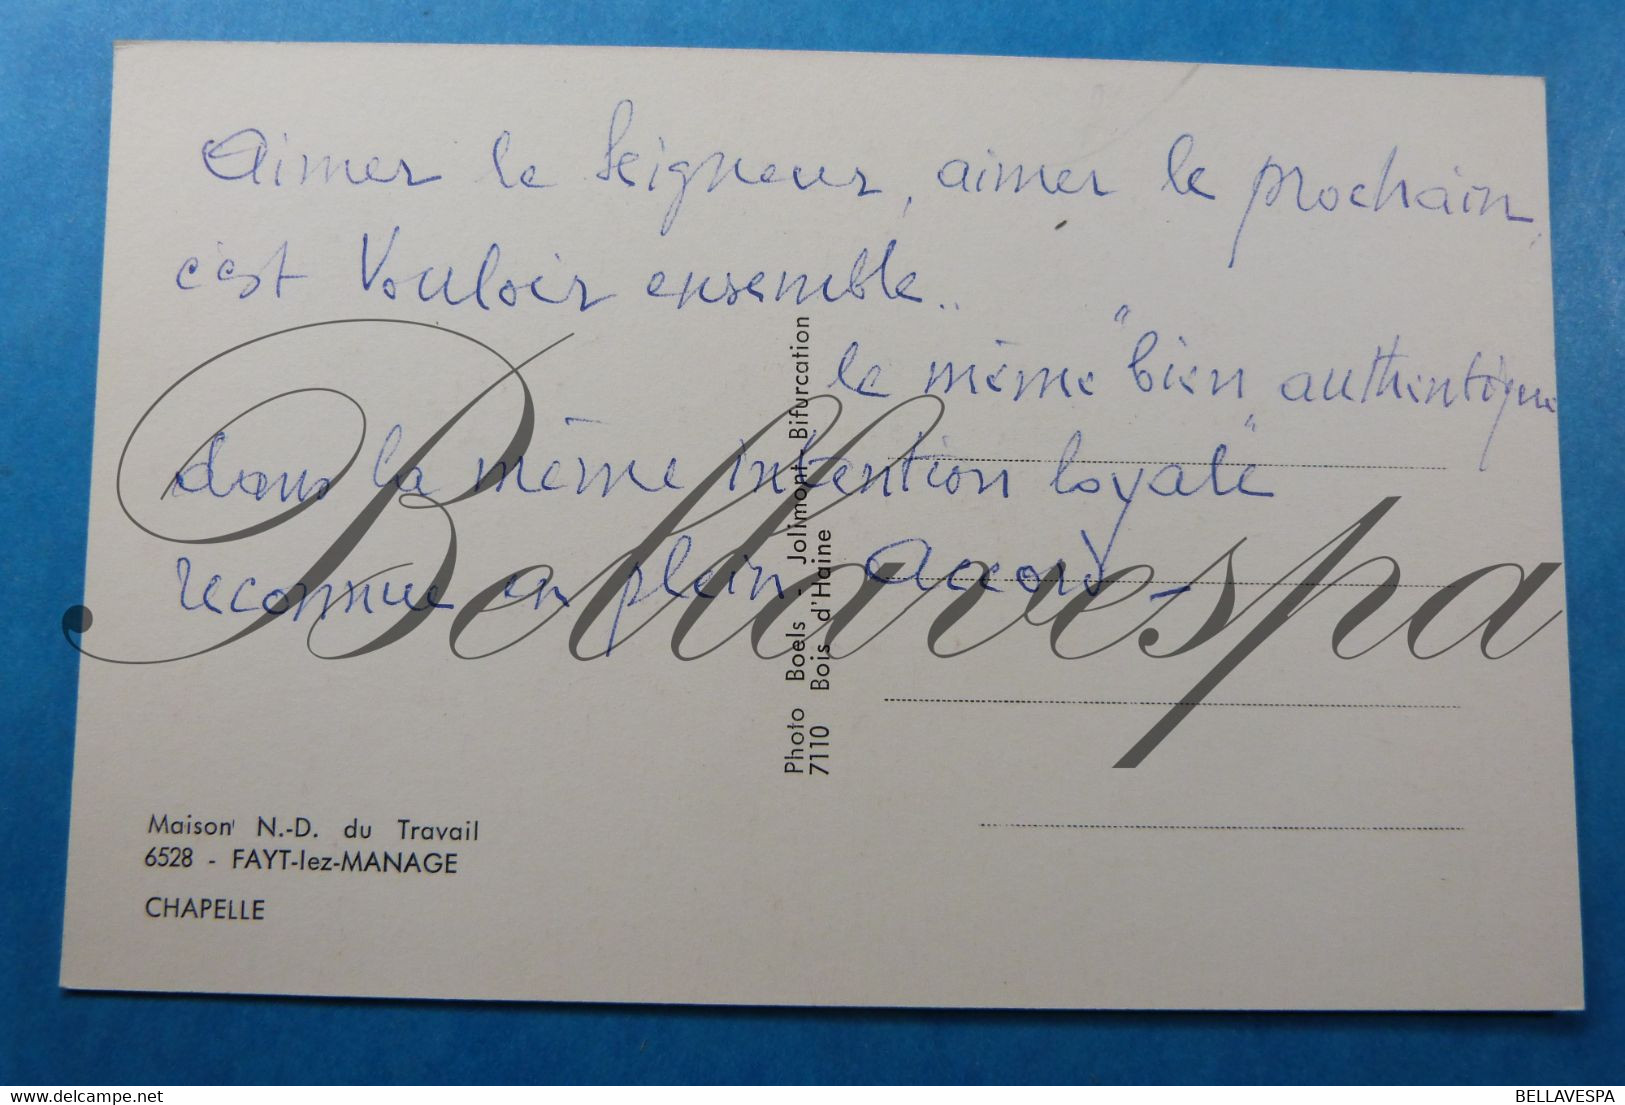 Aimer le Seigneur, aimer le prochain,
c'est Vouloir ensemble..
le même "bien authentique
dans la même intention loyale"
reconnue en plein accord -
Photo Boels - Jolimont Bifurcation
7110 Bois d'Haine
Maison N.-D. du Travail
6528 - FAYT-lez-MANAGE
CHAPELLE
Bellavespa
delcampe.net
BELLAVESPA